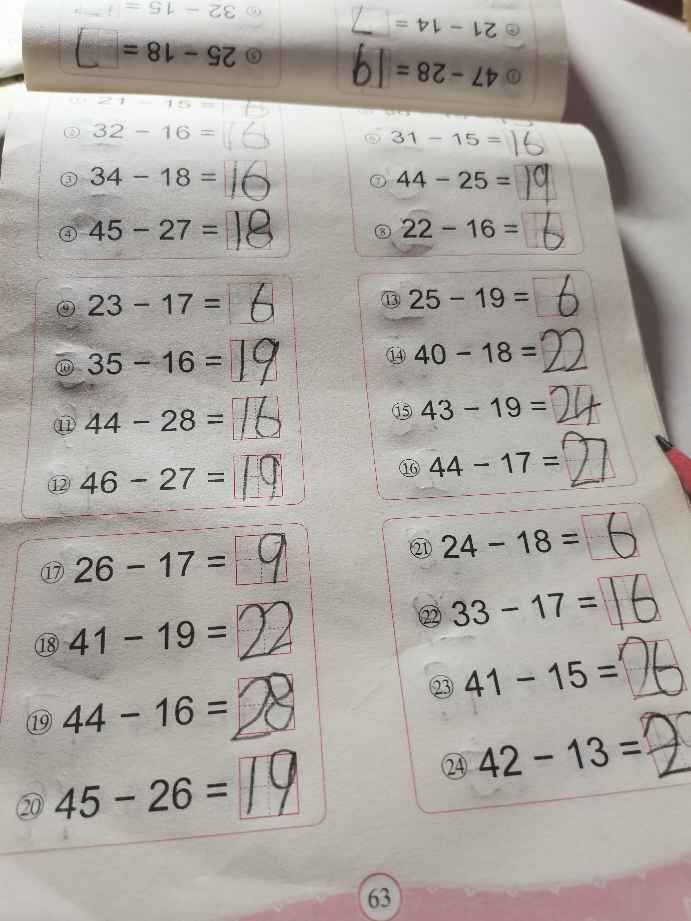 ① 47 - 28 = 19
② 21 - 14 = 7
⑤ 25 - 18 = 7
32 - 15 =
21 - 15 = 6
② 32 - 16 = 16
③ 34 - 18 = 16
④ 45 - 27 = 18
⑥ 31 - 15 = 16
⑦ 44 - 25 = 19
⑧ 22 - 16 = 6
⑨ 23 - 17 = 6
⑩ 35 - 16 = 19
⑪ 44 - 28 = 16
⑫ 46 - 27 = 19
⑬ 25 - 19 = 6
⑭ 40 - 18 = 22
⑮ 43 - 19 = 24
⑯ 44 - 17 = 27
⑰ 26 - 17 = 9
⑱ 41 - 19 = 22
⑲ 44 - 16 = 28
⑳ 45 - 26 = 19
㉑ 24 - 18 = 6
㉒ 33 - 17 = 16
㉓ 41 - 15 = 26
㉔ 42 - 13 = 2
63